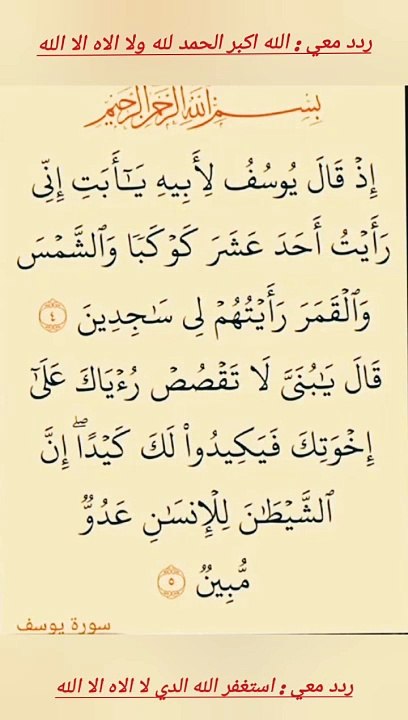 ردد معي : الله اكبر الحمد لله ولا الاه الا الله
بِسْمِ اللَّهِ الرَّحْمَٰنِ الرَّحِيمِ
إِذۡ قَالَ يُوسُفُ لِأَبِيهِ يَـٰٓأَبَتِ إِنِّي
رَأَيۡتُ أَحَدَ عَشَرَ كَوۡكَبٗا وَٱلشَّمۡسَ
وَٱلۡقَمَرَ رَأَيۡتُهُمۡ لِي سَـٰجِدِينَ ٤
قَالَ يَـٰبُنَيَّ لَا تَقۡصُصۡ رُءۡيَاكَ عَلَىٰٓ
إِخۡوَتِكَ فَيَكِيدُواْ لَكَ كَيۡدًاۖ إِنَّ
ٱلشَّيۡطَـٰنَ لِلۡإِنسَـٰنِ عَدُوّٞ
مُّبِينٞ ٥
سورة يوسف
ردد معي : استغفر الله الدي لا الاه الا الله